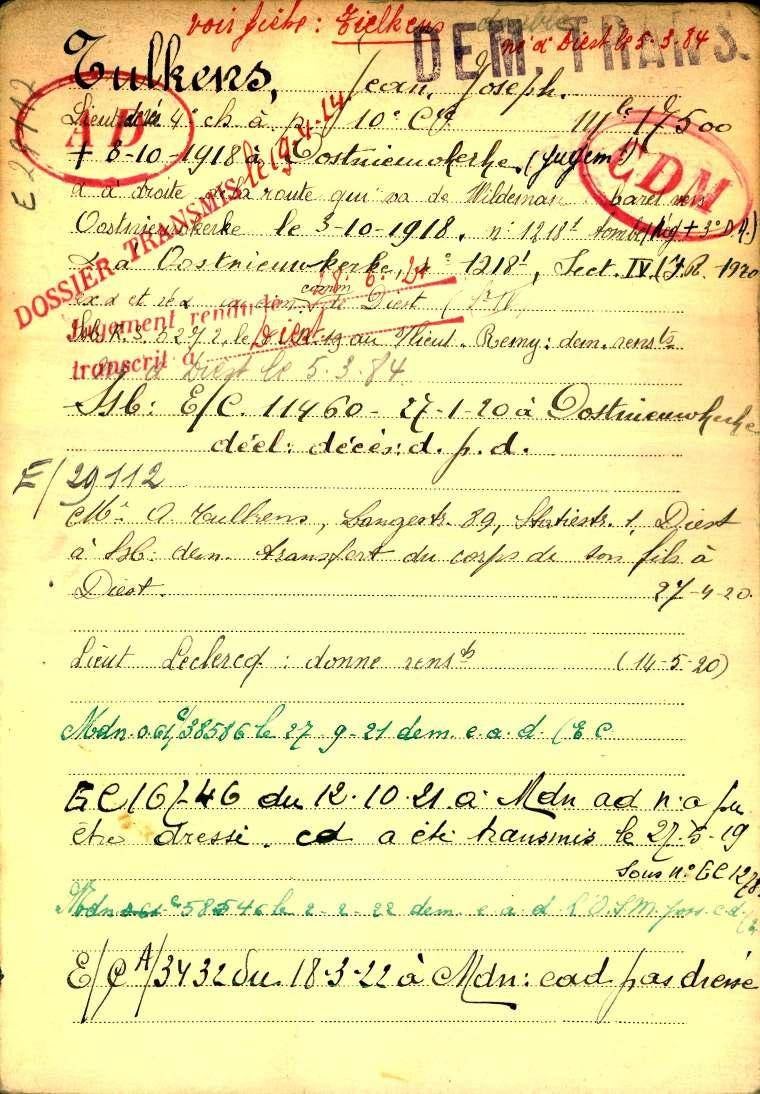 voir fiche: Tielkens
DEM. TRANS.
né à Diest le 5.3.84
Tulkens, Jean, Joseph.
Lieut 4e ch à p. 10e Cie 17500
AD
+ 8-10-1918 à Oostnieuwkerke. (jugemt)
CDM
à droite de la route qui va de Wildeman baret vers
Oostnieuwkerke le 3-10-1918. n: 1218t tombe
à Oostnieuwkerke, n° 1218t, Sect. IV (J.R. 1920
DOSSIER TRANSMIS le 19-4-24
Jugement rendu le 28.6.21
Diest
transcrit à
au Lieut. Remy: dem. rensts
né à Diest le 5.3.84
Ssb: E/C. 11460 - 27-1-20 à Oostnieuwkerke
décl: décès: d. p. d.
E 29112
E/29112
Mr Tulkens, Langestr. 89, Statiestr. 1, Diest
à Ssb: dem. transfert du corps de son fils à
Diest. 27-4-20.
Lieut Leclercq: donne rensts (14-5-20)
Mdn. 38586 le 27 9-21 dem. e.a.d. (EC
EC 167-46 du 12.10.21 à Mdn ad n'a pu
être dressé. cd a été transmis le 27-5-19
Sous n° EC 1278
Mdn 58546 le 2-2-22 dem. e a d
E/C A/3432 du 18-3-22 à Mdn: ead pas dressé